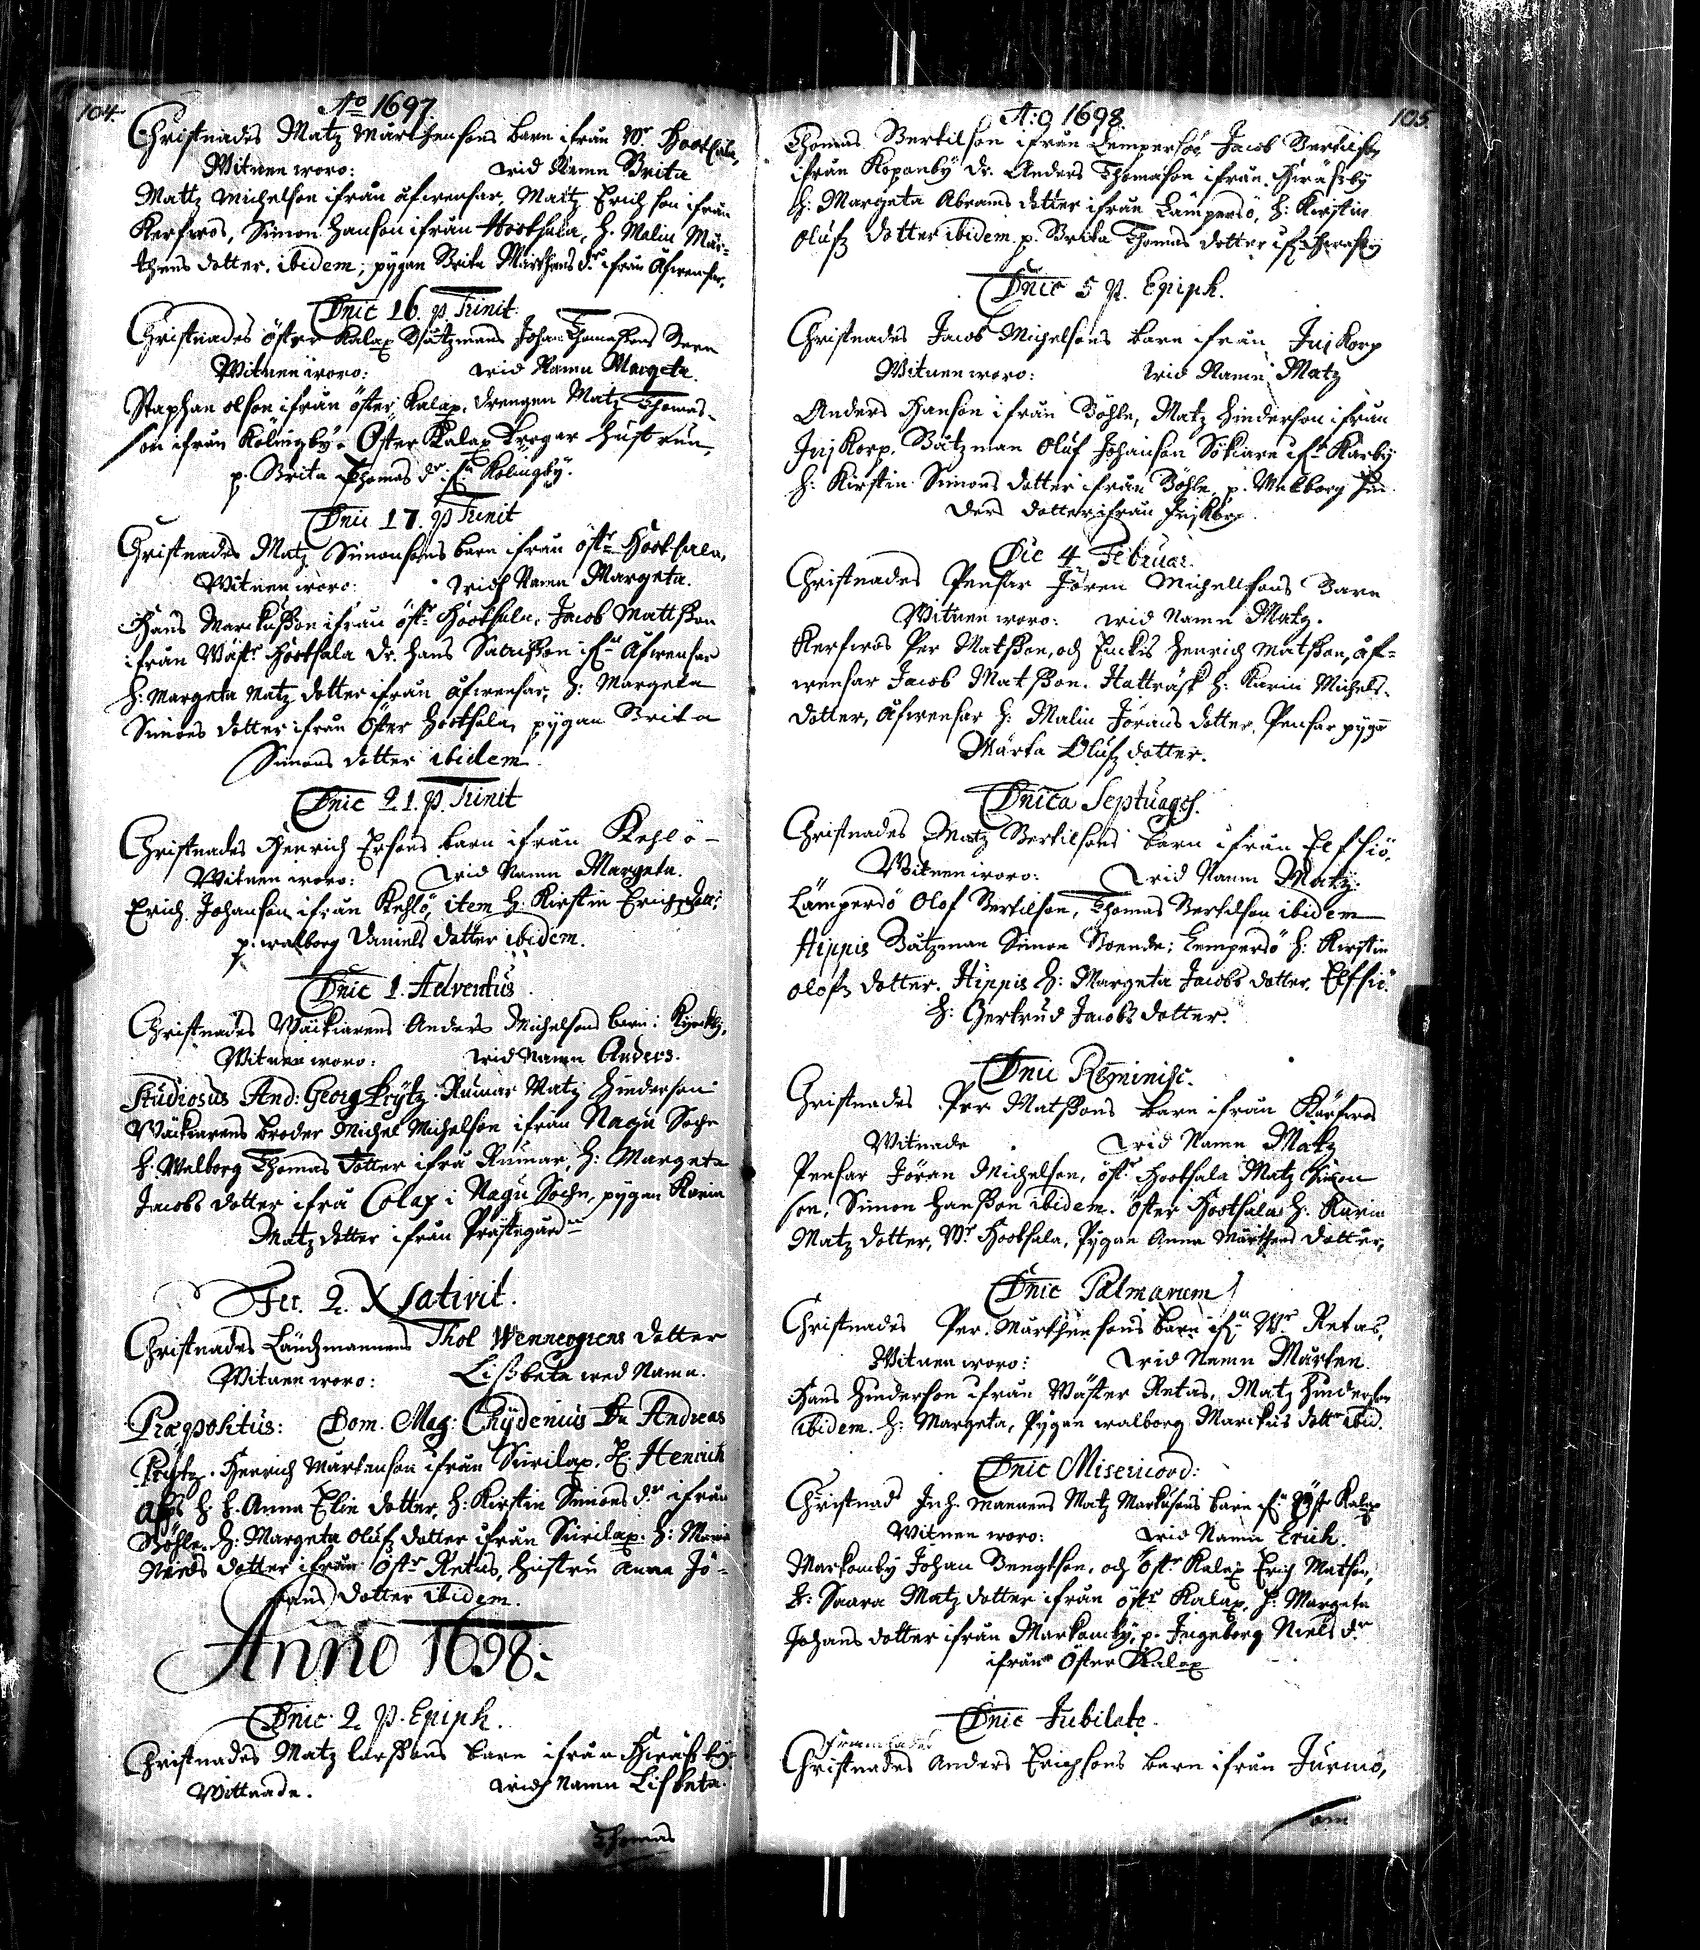 104.
Ao 1697.
Christnades Matz Mårthensons barn ifrån Wr Hootsala,
Witnen woro: wid Namn Brita
Mattz Michelson ifrån Afwensar, Matz Erich son ifrån
Kerfwos, Simon Hanson ifrån Hootsala, H. Malin Mår-
thens dotter. ibidem; pygan Brita Mårthens dr ifrån Afwensar.
Dnic 16. p. Trinit.
Christnades öster Kalax Båtzmans Johan Thomassons barn
Witnen woro: wid Namn Margeta.
Staphan olson ifrån öster Kalax. drengen Matz Thomas-
son ifrån Kölingby. Öster Kalax Krögar Hustrun,
p. Brita Thomas dr. fn Kölingby.
Dnic 17. p Trinit
Christnades Matz Simonsons barn ifrån östr Hootsala,
Witnen woro: widh Namn Margeta.
Hans Markusson ifrån östr Hootsala, Jacob Mattsson
ifrån Wästr Hootsala Dr. Hans ifn Afwensar
H: Margeta Matz dotter ifrån Afwensar, H: Margeta
Simons dotter ifrån Öster Hootsala, pygan Brita
Simons dotter ibidem.
Dnic 21. p. Trinit
Christnades Henrich Ersons barn ifrån Kehlö
Witnen woro: wid Namn Margeta.
Erich Johanson ifrån Kehlö, item H. Kirstin Erichs dotr:
p. walborg Daniels dotter ibidem.
Dnic 1. Adventus
Christnades Wäckiarens Anders Michelsons barn:
Witnen woro: wid Namn Anders.
Studiosus And: Georg Prytz Rumar Matz Hinderson
Wäckiarens broder Michel Michelson ifrån Nagu Sochn
H. Walborg Thomas dotter ifrå Rumar, H: Margeta
Jacobs dotter ifrå Colax i Nagu Sochn, pygan Karin
Matz dotter ifrån Prästegårdn
Fer. 2. X Nativit.
Christnades Länsmannens Thol Wennegrens dotter
Witnen woro: Lissbeta wed Namn.
Præpositus: Dom. Mag: Chydenius Dn Andreas
Prytz. Henrich Mårtenson ifrån Siirilax. Henrich
H: Anna Elin dotter, H: Kirstin Simons dr ifrån
Böhle. H: Margeta Olufz dotter ifrån Siirilax. H: Maria
dotter ifrån östr Retas, Hustru Anna Jö-
rans dotter ibidem.
Anno 1698:
Dnic. 2. p. Epiph.
Christnades Matz Larssons barn ifrån Hwäfsby
Wittnade. widh Namn Lisbeta.
Thomas
A:o 1698.
105.
Thomas Bertilson ifrån Lempersöö Jacob Bertilson
ifrån Kopanby Dr. Anders Thomason ifrån
H: Margeta Abrams dotter ifrån Lämpersö, H: Kirstin
Olufz dotter ibidem. p. Brita Thomas dotter
Dnic 5 p. Epiph.
Christnades Jacob Michelsons barn ifrån Injkorp
Witnen woro: wid Namn Matz
Anders Hanson ifrån Böhle, Matz Hinderson ifrån
Injkorp. Båtzman Oluf Johanson Sökiare ifn Kårby
H: Kirstin Simons dotter ifrån Böhle, p. Walborg Hin-
ders dotter ifrån Injkorp.
Die 4. Februar.
Christnades Pensar Jören Michelsons Barn
Witnen woro: wid Namn Matz.
Kerfwos Per Matsson, och Finkis Henrich Matsson, Af-
wensar Jacob Matsson. Hatträsk H: Karin Michels-
dotter, Afwensar H: Malin Jörans dotter. Pensar pyga
Märta Olufz dotter.
Dnica Septuages.
Christnades Matz Bertilsons barn ifrån Elfsiö.
Witnen woro: wid Namn Matz.
Lämpersö Olof Bertilson, Thomas Bertilson ibidem
Hippis Båtzman Simon Boende; Lempersö H: Kirstin
olofz dotter. Hippis H: Margeta Jacobs dotter. Elfsiö
H: Gertrud Jacobs dotter.
Dnic Reminisc.
Christnades Per Matssons barn ifrån Kärfwos
Witnade wid Namn Matz
Pensar Jöran Michelson, östr Hootsala Matz Simon
son, Simon Hansson ibidem. Öster Hootsala H: Karin
Matz dotter, Wr Hootsala, Pygan Anna Mårthens dotter,
Dnic Palmarum
Christnades Per. Mårthensons barn ifn Wr Retas,
Witnen woro: wid Namn Mårten.
Hans Hinderson ifrån Wäster Retas, Matz Hinderson
ibidem. H: Margeta, Pygan walborg Markus dottr ibid.
Dnic Misericord:
Christnad mannens Matz Markusons barn fn Östr Kalax
Witnen woro: wid Namn Erich.
Markomby Johan Bengtson, och Östr Kalax Erich Matson,
H: Saara Matz dotter ifrån östr Kalax, H: Margeta
Johans dotter ifrån Markomby, p. Ingeborg Niels dr
ifrån Öster Kalax
Dnic Jubilate.
Christnades Anders Erichsons barn ifrån Jurmo,
som